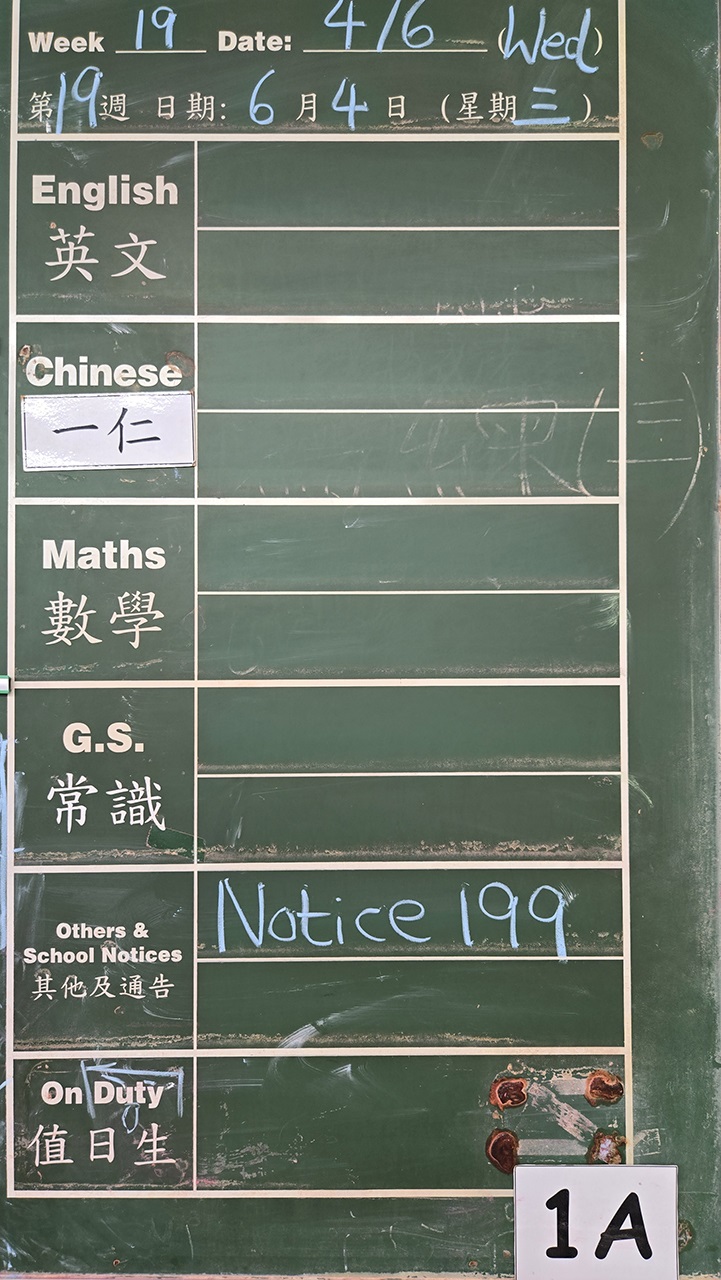 Week 19 Date: 4/6 (Wed)
第19週 日期: 6月4日 (星期三)
English
英文
Chinese
一仁
Maths
數學
G.S.
常識
Others &
School Notices
其他及通告
Notice 199
On Duty
值日生
1A